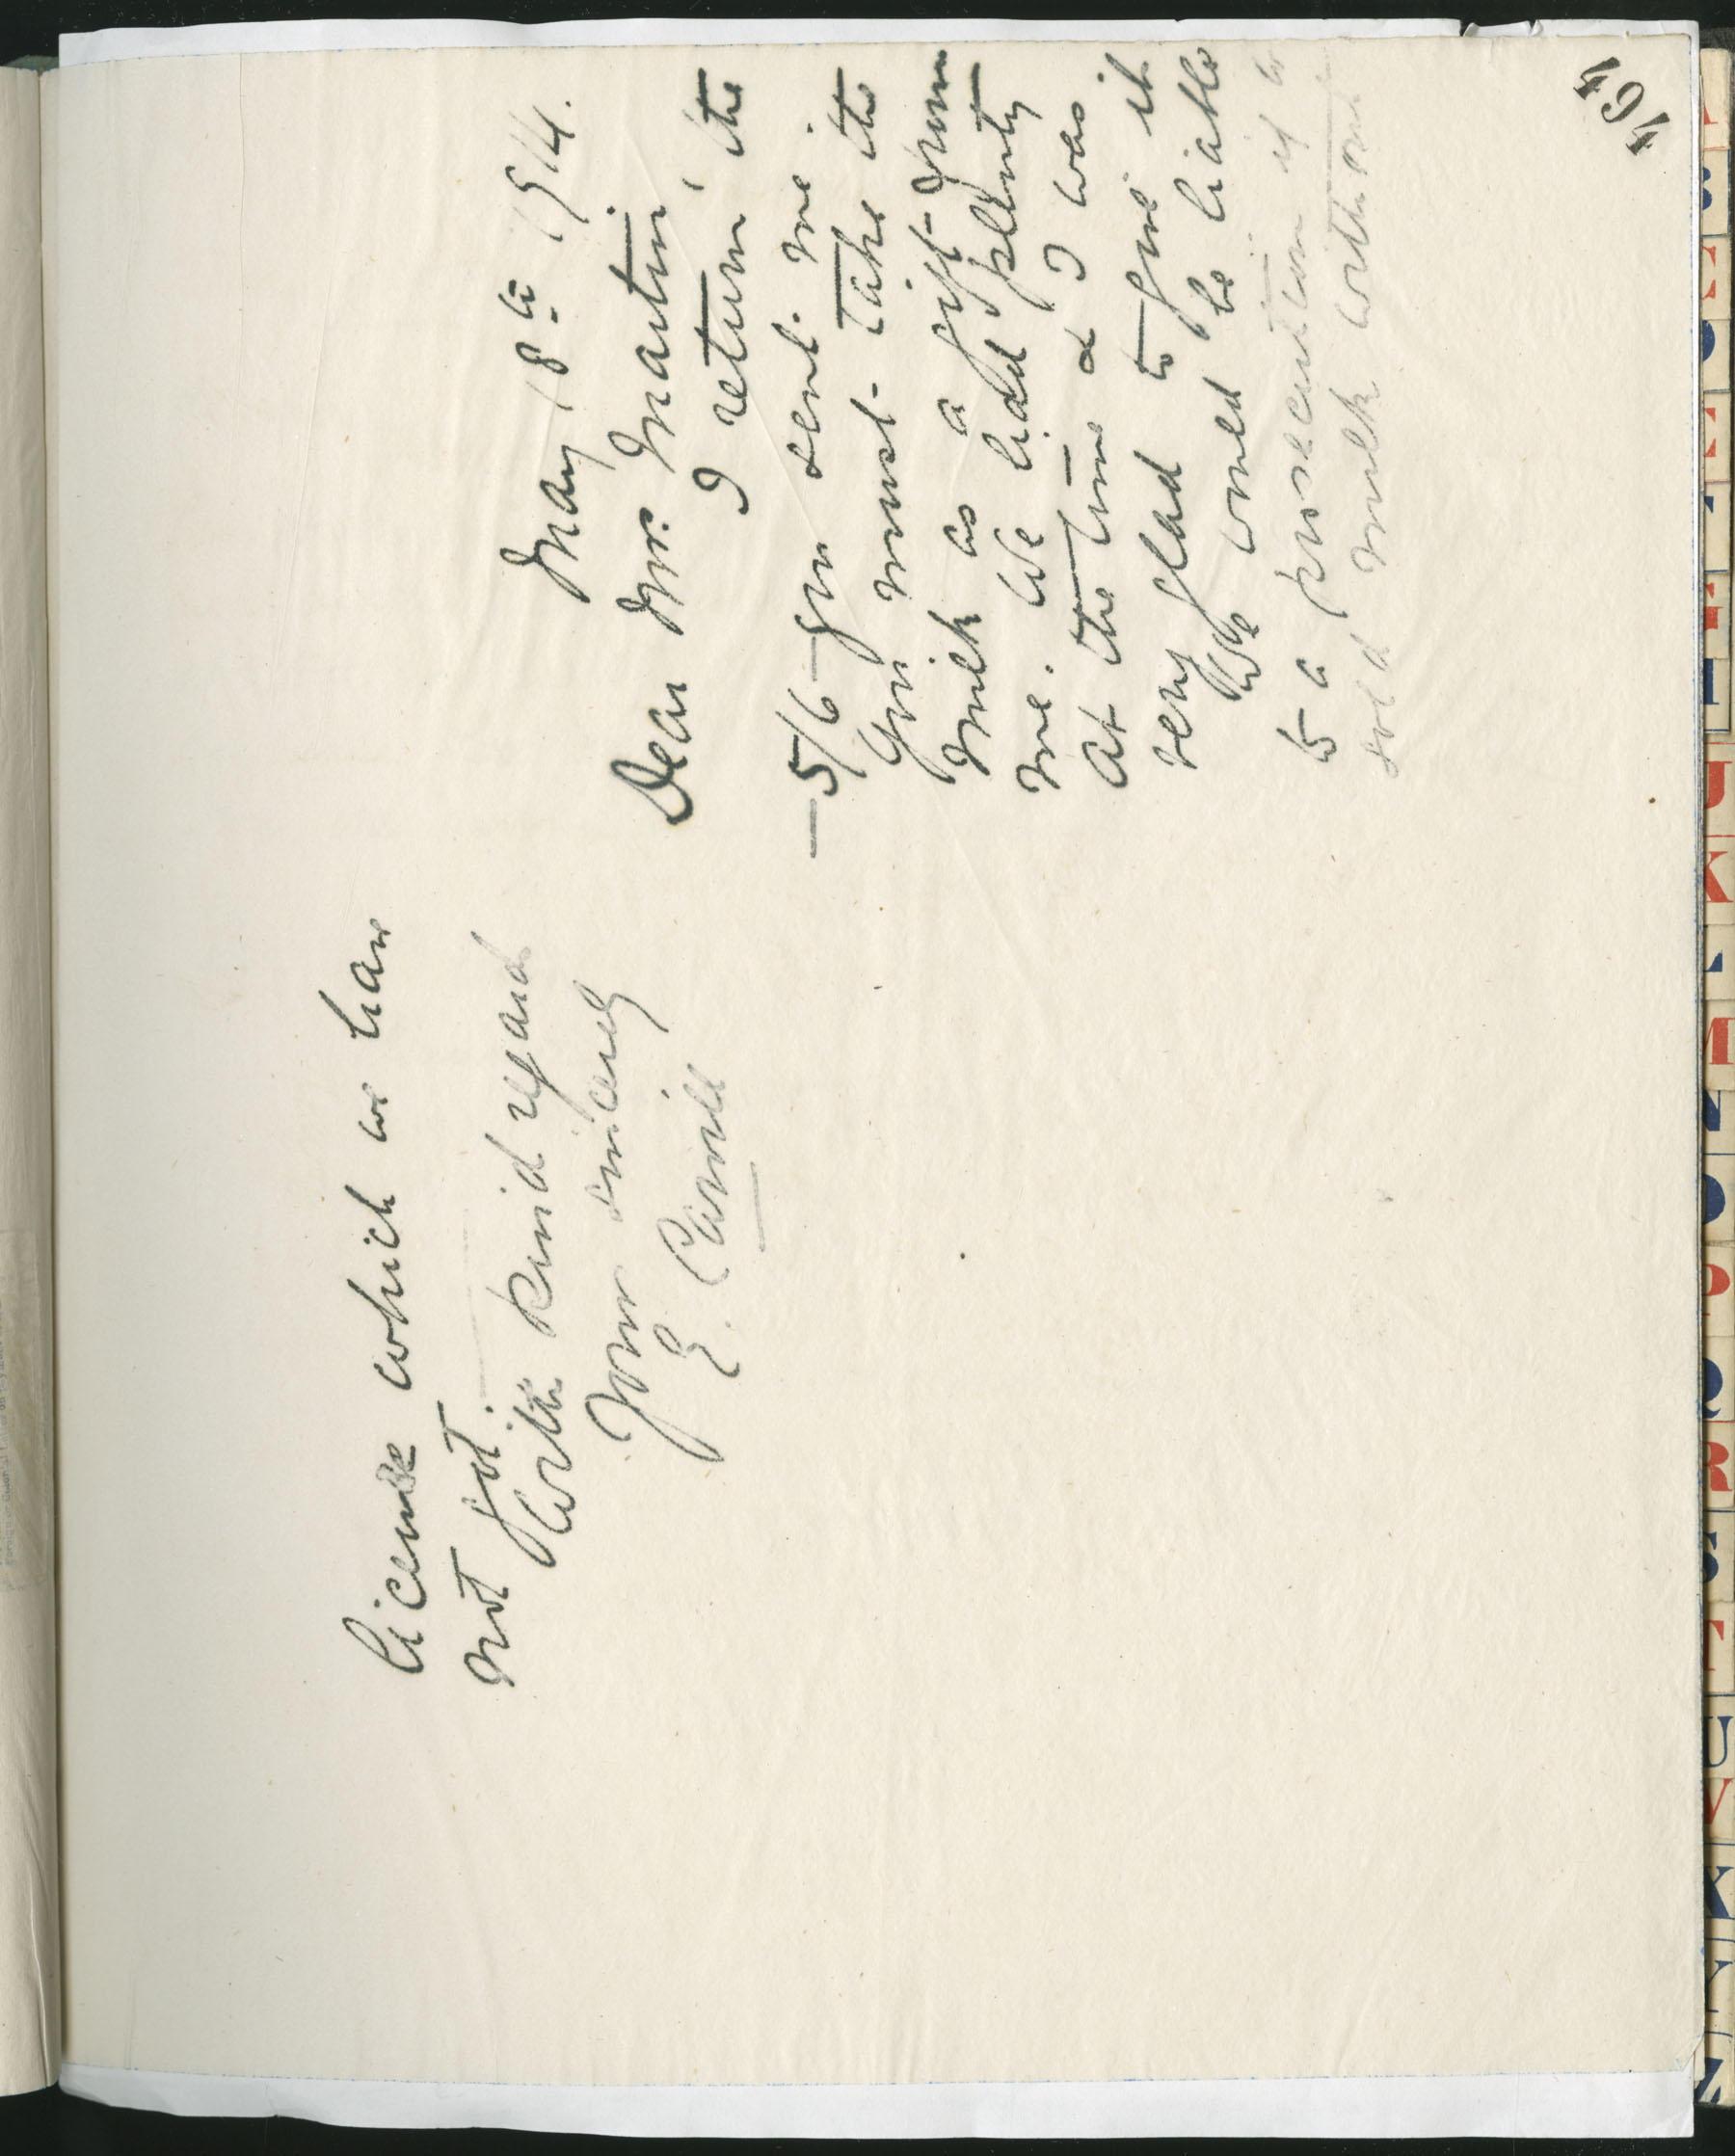 494
May 18th 1914.
Dear Mr. Martin,
I return the
5/6 you sent me.
You must take the
milk as a gift from
me. We had plenty
at the time & I was
very glad to give it
We could be liable
to a prosecution if we
sold milk without
license which we have
not got.
With kind regards
Yours sincerely
E.